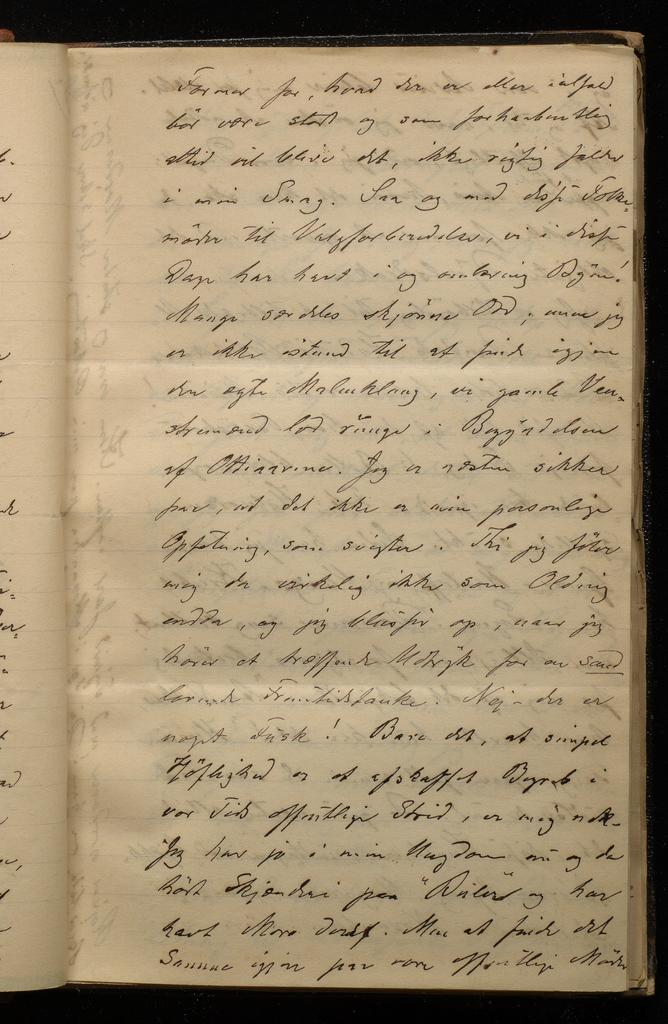 Former for, hvad der er eller ialfald
bör være stort og som forhaabentlig
altid vil blive det, ikke rigtig falder
i min Smag. Saa og med disse Folke-
möder til Valgforberedelse, vi i disse
Dage har havt i og omkring Byen!
Mange særdeles skjönne Ord; men jeg
er ikke istand til at finde igjen
den ægte Malmklang, vi gamle Ven-
stremænd lod runge i Begyndelsen
af Ottiaarene. Jeg er næsten sikker
paa, at det ikke er min personlige
Opfatning, som svigter. Thi jeg föler
mig da virkelig ikke som Olding
endda, og jeg blusser op, naar jeg
hörer et træffende Udtryk for en sand
levende Fremtidstanke. Nej - der er
noget Fusk! Bare det, at simpel
Höflighed er et afskaffet Begreb i
vor Tids offentlige Strid, er mig nok.
Jeg har jo i min Ungdom nu og da
hört Skjænderi paa "Buler" og har
havt Moro deraf. Men at finde det
Samme igjen paa vore offentlige Möder